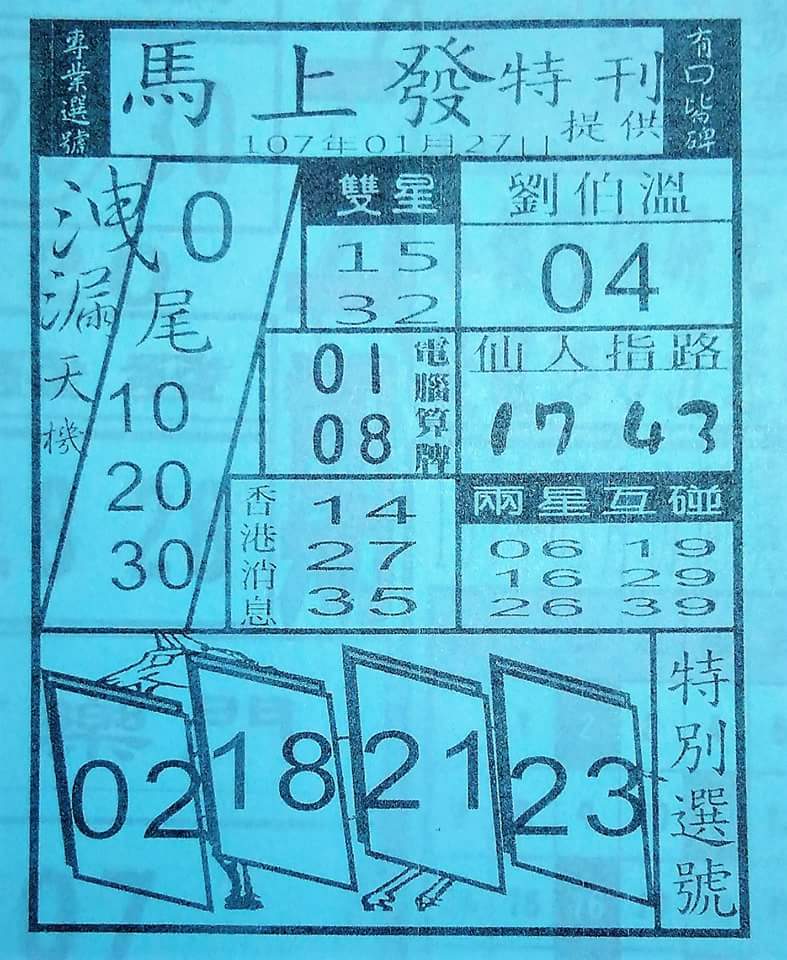 專業選號
馬上發特刊
提供
107年01月27日
有口皆碑
洩漏天機
0
尾
10
20
30
雙星
15
32
劉伯溫
04
01
08
電腦算牌
仙人指路
17 43
香港消息
14
27
35
兩星互碰
06 19
16 29
26 39
02
18
21
23
特別選號